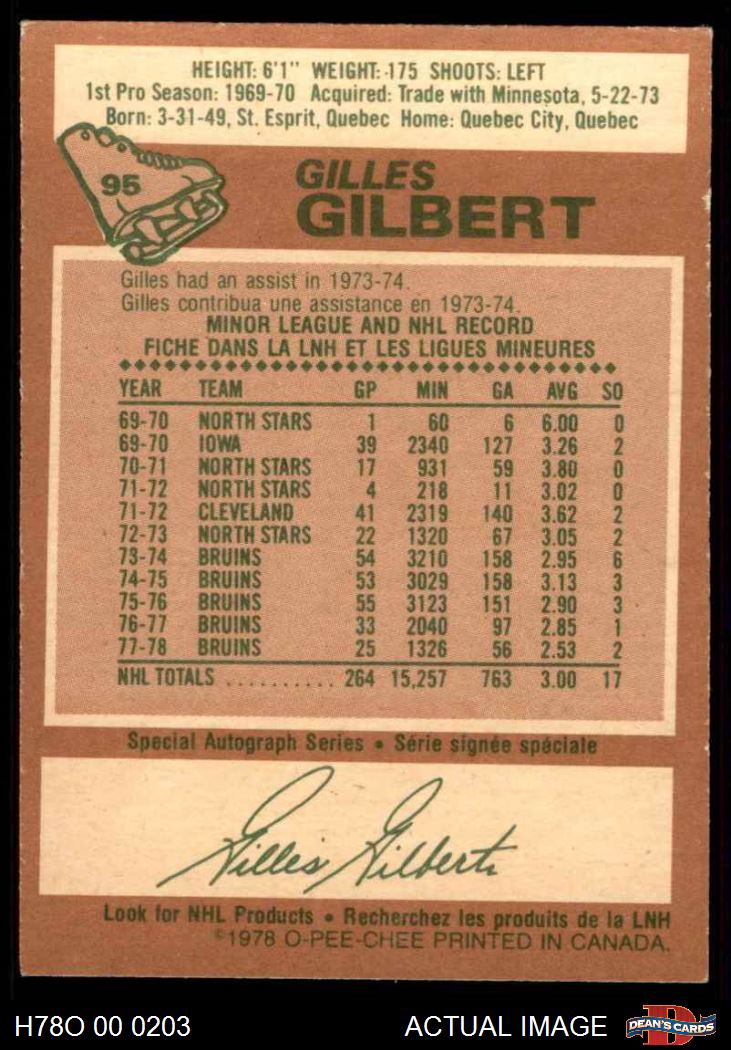 HEIGHT: 6'1" WEIGHT: 175 SHOOTS: LEFT
1st Pro Season: 1969-70 Acquired: Trade with Minnesota, 5-22-73
Born: 3-31-49, St. Esprit, Quebec Home: Quebec City, Quebec
95
GILLES
GILBERT
Gilles had an assist in 1973-74.
Gilles contribua une assistance en 1973-74.
MINOR LEAGUE AND NHL RECORD
FICHE DANS LA LNH ET LES LIGUES MINEURES
YEAR TEAM GP MIN GA AVG SO
69-70 NORTH STARS 1 60 6 6.00 0
69-70 IOWA 39 2340 127 3.26 2
70-71 NORTH STARS 17 931 59 3.80 0
71-72 NORTH STARS 4 218 11 3.02 0
71-72 CLEVELAND 41 2319 140 3.62 2
72-73 NORTH STARS 22 1320 67 3.05 2
73-74 BRUINS 54 3210 158 2.95 6
74-75 BRUINS 53 3029 158 3.13 3
75-76 BRUINS 55 3123 151 2.90 3
76-77 BRUINS 33 2040 97 2.85 1
77-78 BRUINS 25 1326 56 2.53 2
NHL TOTALS .......... 264 15,257 763 3.00 17
Special Autograph Series • Série signée spéciale
Gilles Gilbert
Look for NHL Products • Recherchez les produits de la LNH
©1978 O-PEE-CHEE PRINTED IN CANADA.
H78O 00 0203 ACTUAL IMAGE DEAN'S CARDS